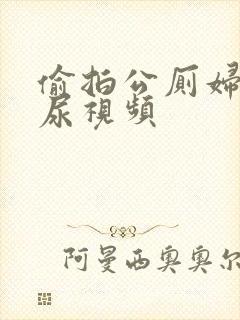 偷拍公厕婦
尿視頻
阿曼西奥奥尔